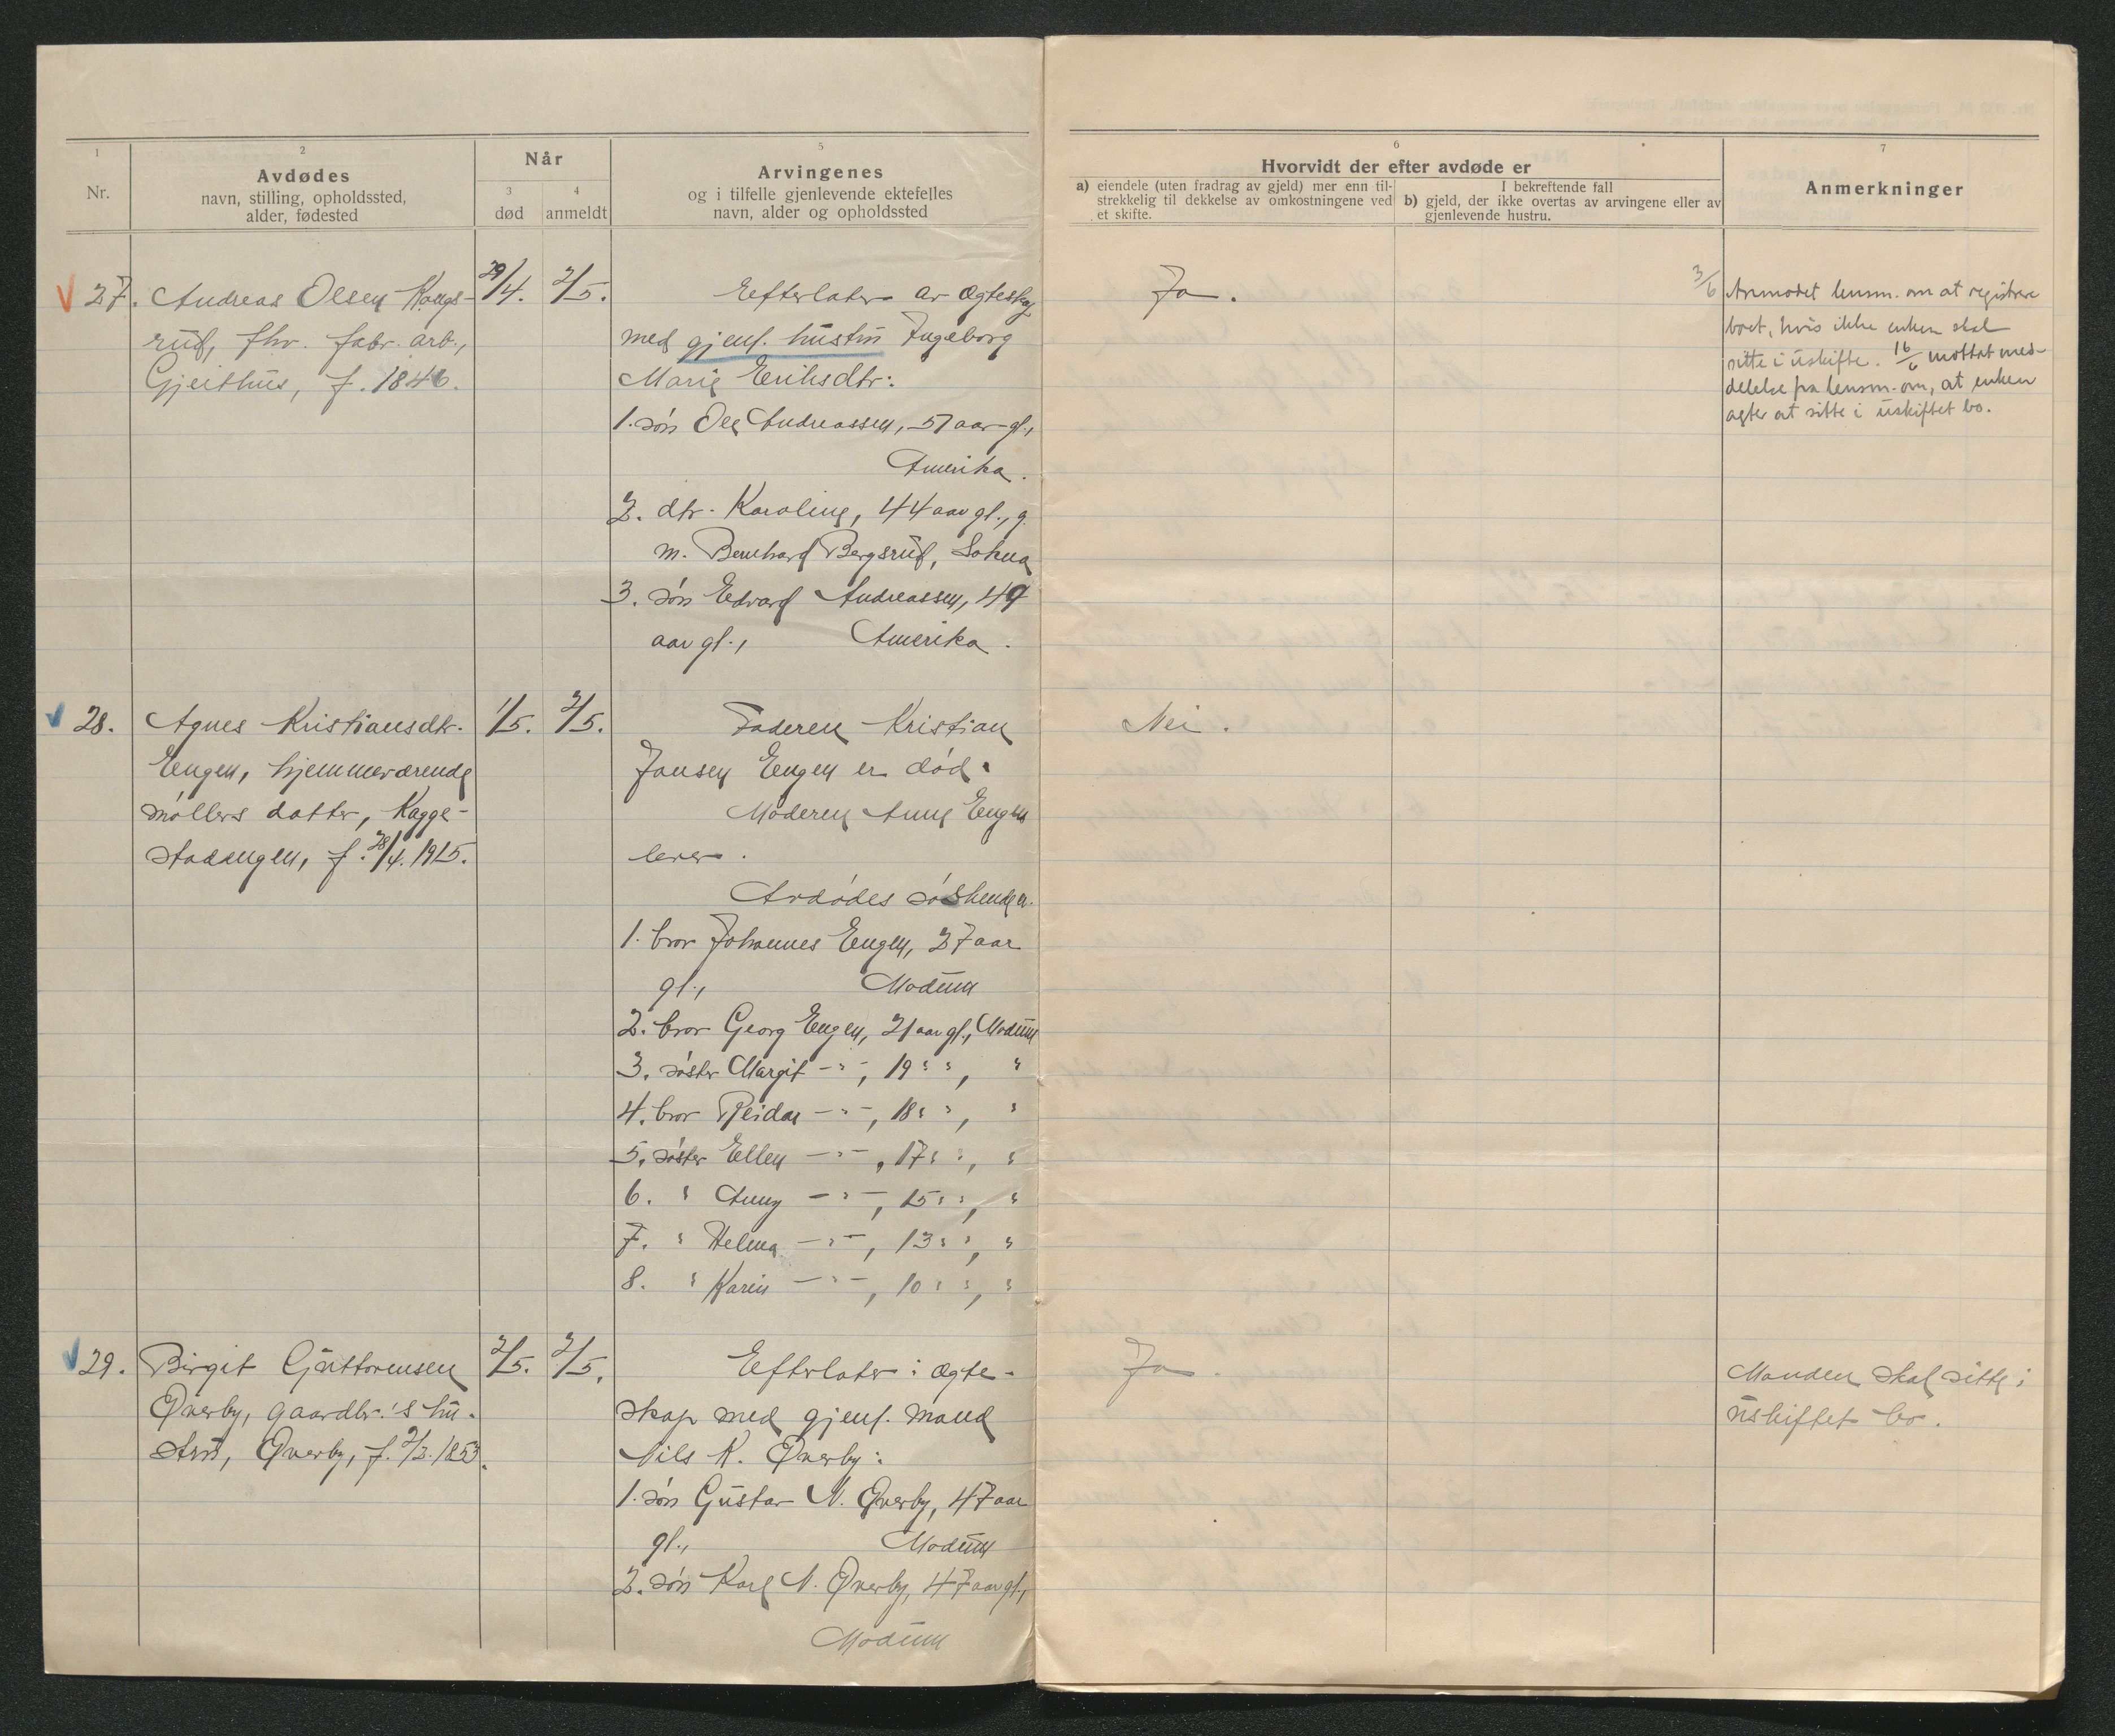 1
Nr.
2
Avdødes
navn, stilling, opholdssted,
alder, fødested
Når
3
død
4
anmeldt
5
Arvingenes
og i tilfelle gjenlevende ektefelles
navn, alder og opholdssted
6
Hvorvidt der efter avdøde er
a) eiendele (uten fradrag av gjeld) mer enn til-
strekkelig til dekkelse av omkostningene ved
et skifte.
I bekreftende fall
b) gjeld, der ikke overtas av arvingene eller av
gjenlevende hustru.
7
Anmerkninger
27. Andreas Olsen Kongs-
rud, fhv. fabr. arb.,
Gjeithus, f. 1846.
29/4. 2/5.
Efterlater av ægteskap
med gjenl. hustru Ingeborg
Marie Eriksdtr:
1. søn Ole Andreassen, 51 aar gl.,
Amerika.
2. dtr. Karoline, 44 aar gl., g.
m. Bernhard Bergsrud, Sokna
3. søn Edvard Andreassen, 49
aar gl., Amerika.
Ja.
3/6 Anmodet lensm. om at registrere
boet, hvis ikke enken skal
sitte i uskifte. 16/6 mottat med-
delelse fra lensm. om, at enken
agter at sitte i uskiftet bo.
28. Agnes Kristiansdtr.
Engen, hjemmeværende
møllers datter, Kagge-
stadengen, f. 28/4. 1915.
1/5. 2/5.
Faderen Kristian
Jansen Engen er død.
Moderen Anne Engen
lever.
Avdødes søskende er
1. bror Johannes Engen, 27 aar
gl., Modum
2. bror Georg Engen, 21 aar gl., Modum
3. søster Margit -"-, 19 " ", "
4. bror Reidar -"-, 18 " ", "
5. søster Ellen -"-, 17 " ", "
6. " Anny -"-, 15 " ", "
7. " Helma -"-, 13 " ", "
8. " Karin -"-, 10 " ", "
Nei.
29. Birgit Guttormsen
Øverby, gaardbr.'s hu-
stru, Øverby, f. 2/3. 1853.
2/5. 2/5.
Efterlater i ægte-
skap med gjenl. mand
Nils K. Øverby:
1. søn Gustav N. Øverby, 47 aar
gl., Modum
2. søn Karl N. Øverby, 47 aar gl.,
Modum
Ja.
Manden skal sitte i
uskiftet bo.